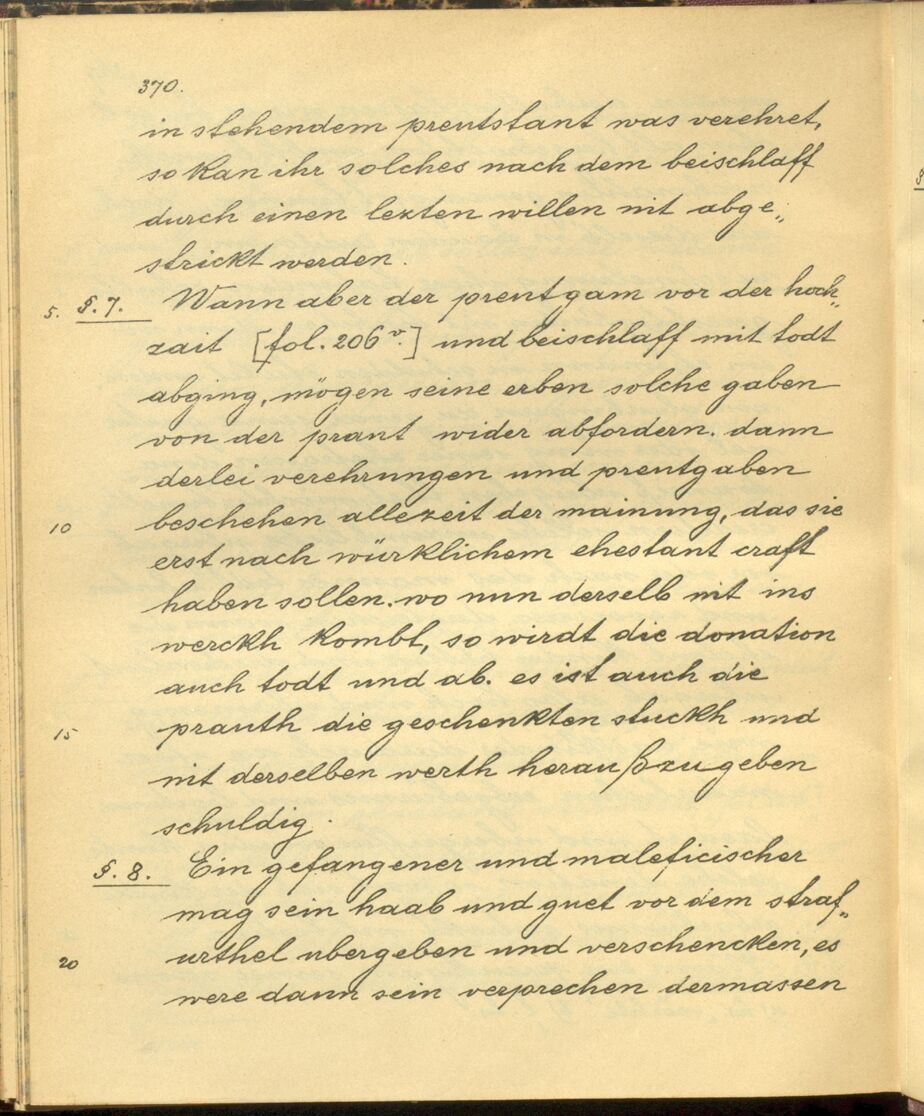 370.
in stehendem preutstant was verehret,
so kan ihr solches nach dem beischlaff
durch einen lezten willen nit abge„
strickt werden.
5. §. 7. Wann aber der preutgam vor der hoch„
zait [fol. 206 v.] und beischlaff mit todt
abging, mögen seine erben solche gaben
von der praut wider abfordern. dann
derlei verehrungen und preutgaben
10 beschehen allezeit der mainung, das sie
erst nach würklichem ehestant craft
haben sollen. wo nun derselb nit ins
werckh kombt, so wirdt die donation
auch todt und ab. es ist auch die
15 prauth die geschenkten stuckh und
nit derselben werth heraußzugeben
schuldig.
§. 8. Ein gefangener und maleficischer
mag sein haab und guet vor dem straf„
20 urthel ubergeben und verschencken, es
were dann sein verprechen dermassen